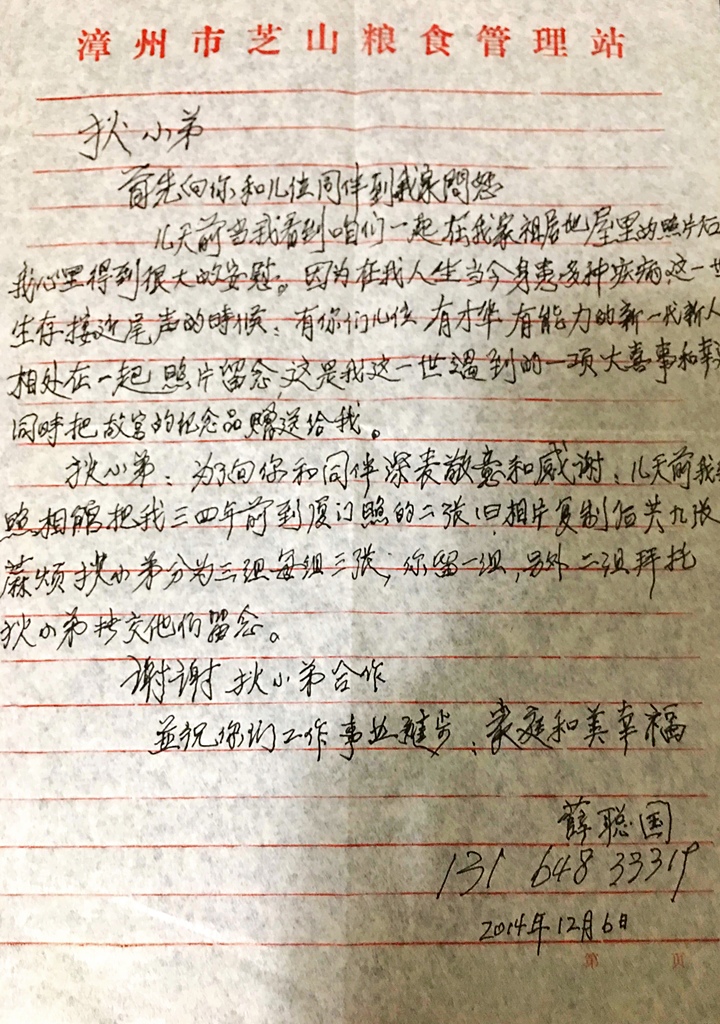 漳州市芝山粮食管理站
狄小弟
首先向你和几位同伴到我家问
几天前当我看到咱们一起在我家祖居地屋里的照片后
我心里得到很大的安慰。因为在我人生当今身患多种疾病,这一世
生存接近尾声的時候;有你们几位有才华有能力的新一代新人
相处在一起照片留念,这是我这一世遇到的一项大喜事和幸
同時把故宫的纪念品赠送给我。
狄小弟:为了向你和同伴深表敬意和感谢,几天前我
照相館把我三四年前到厦门照的二张旧相片复制后共九张
蔴烦狄小弟分为三组每组三张;你留一组,另外二组拜托
狄小弟转交他们留念。
谢谢狄小弟合作
並祝你们工作事业進步;家庭和美幸福
薛聪国
131 648 33319
2014年12月6日
第 页